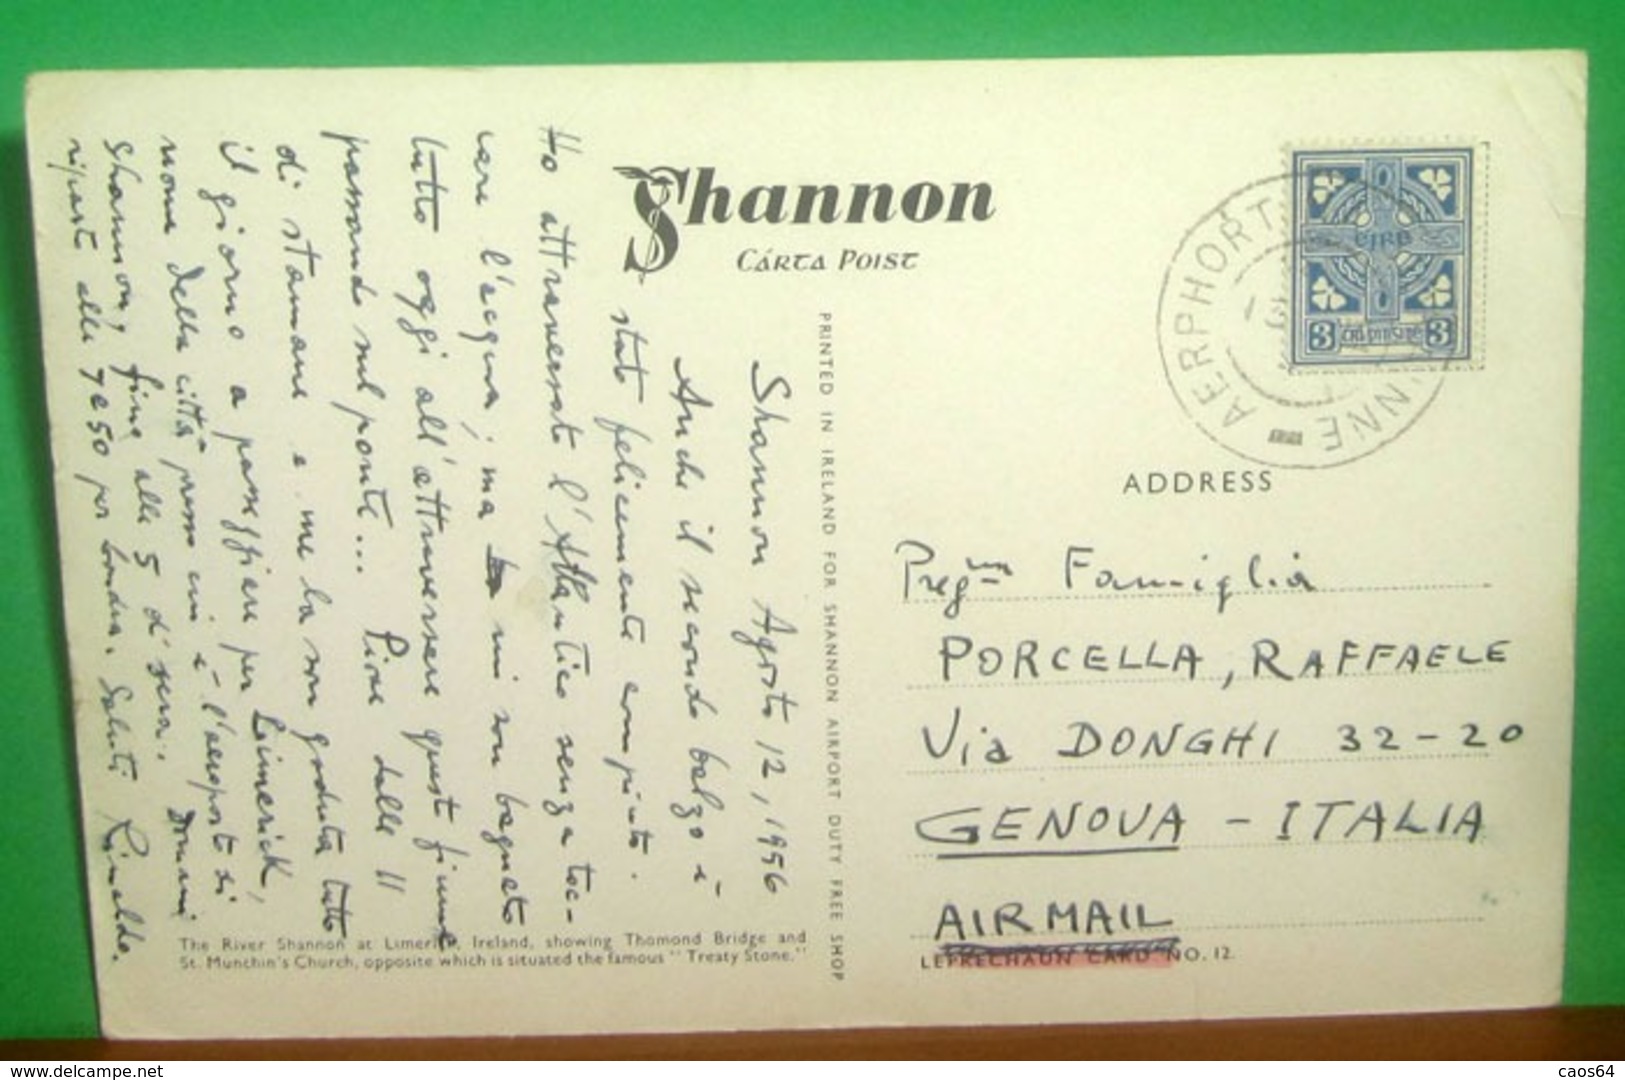 Shannon
CÁRTA POIST
Shannon Agosto 12, 1956
Anche il secondo balzo è
stato felicemente compiuto.
Ho attraversato l'Atlantico senza toc-
care l'acqua; ma mi son bagnato
tutto oggi all'attraversare questo fiume
passando sul ponte... Piove dalle 11
di stamane e me la son goduta tutto
il giorno a passeggiare per Limerick,
nome della città presso cui è l'aeroporto di
Shannon, fino alle 5 d'sera. Domani
riparto alle 7 e 50 per Londra. Saluti Rinaldo.
The River Shannon at Limerick, Ireland, showing Thomond Bridge and
St. Munchin's Church, opposite which is situated the famous "Treaty Stone."
PRINTED IN IRELAND FOR SHANNON AIRPORT DUTY FREE SHOP
AERPHORT
NNE
EIRE
3 3
ADDRESS
Preg.ma Famiglia
PORCELLA, RAFFAELE
Via DONGHI 32-20
GENOVA - ITALIA
AIR MAIL
LEPRECHAUN CARD NO. 12.
http://www.delcampe.net
caos64